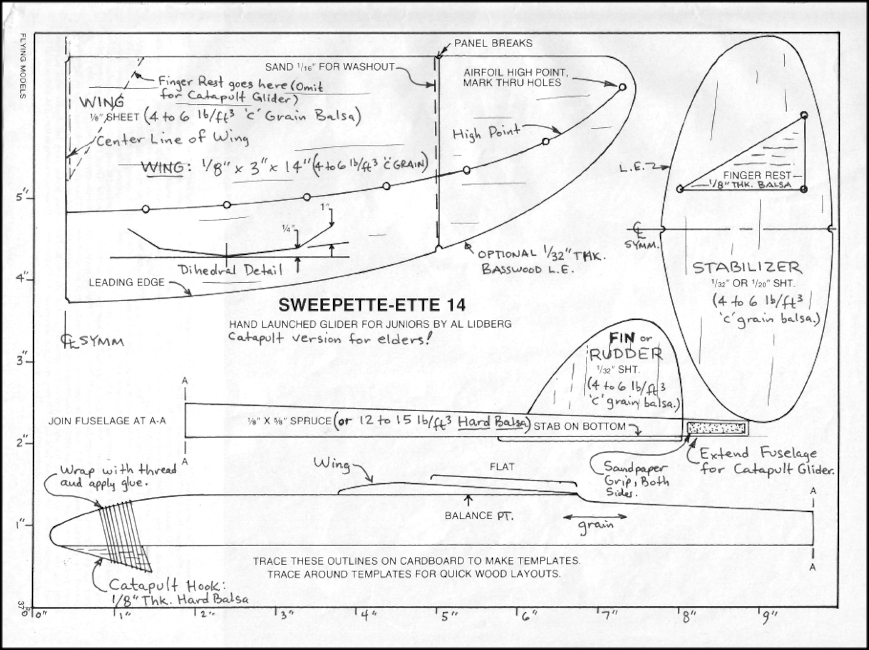 FLYING MODELS
PANEL BREAKS
SAND 1/16" FOR WASHOUT
AIRFOIL HIGH POINT,
MARK THRU HOLES
Finger Rest goes here (Omit
for Catapult Glider)
WING
1/8" SHEET (4 to 6 lb/ft³ 'C' Grain Balsa)
Center Line of Wing
High Point
WING: 1/8" x 3" x 14" (4 to 6 lb/ft³ 'C' GRAIN)
L.E.
FINGER REST
1/8" THK. BALSA
5"
1"
1/4"
℄
SYMM.
Dihedral Detail
OPTIONAL 1/32" THK.
BASSWOOD L.E.
STABILIZER
1/32" OR 1/20" SHT.
(4 to 6 lb/ft³
'C' grain balsa.)
4"
LEADING EDGE
SWEEPETTE-ETTE 14
HAND LAUNCHED GLIDER FOR JUNIORS BY AL LIDBERG
Catapult version for elders!
℄ SYMM
3"
FIN or
RUDDER
1/32" SHT.
(4 to 6 lb/ft³
'C' grain balsa.)
A
JOIN FUSELAGE AT A-A
1/8" X 5/8" SPRUCE (or 12 to 15 lb/ft³ Hard Balsa)
STAB ON BOTTOM
2"
A
Extend Fuselage
for Catapult Glider.
Sandpaper
Grip, Both
Sides.
Wrap with thread
and apply glue.
Wing
FLAT
A
BALANCE PT.
1"
grain
A
TRACE THESE OUTLINES ON CARDBOARD TO MAKE TEMPLATES.
TRACE AROUND TEMPLATES FOR QUICK WOOD LAYOUTS.
Catapult Hook:
1/8" Thk. Hard Balsa
0" 1" 2" 3" 4" 5" 6" 7" 8" 9"